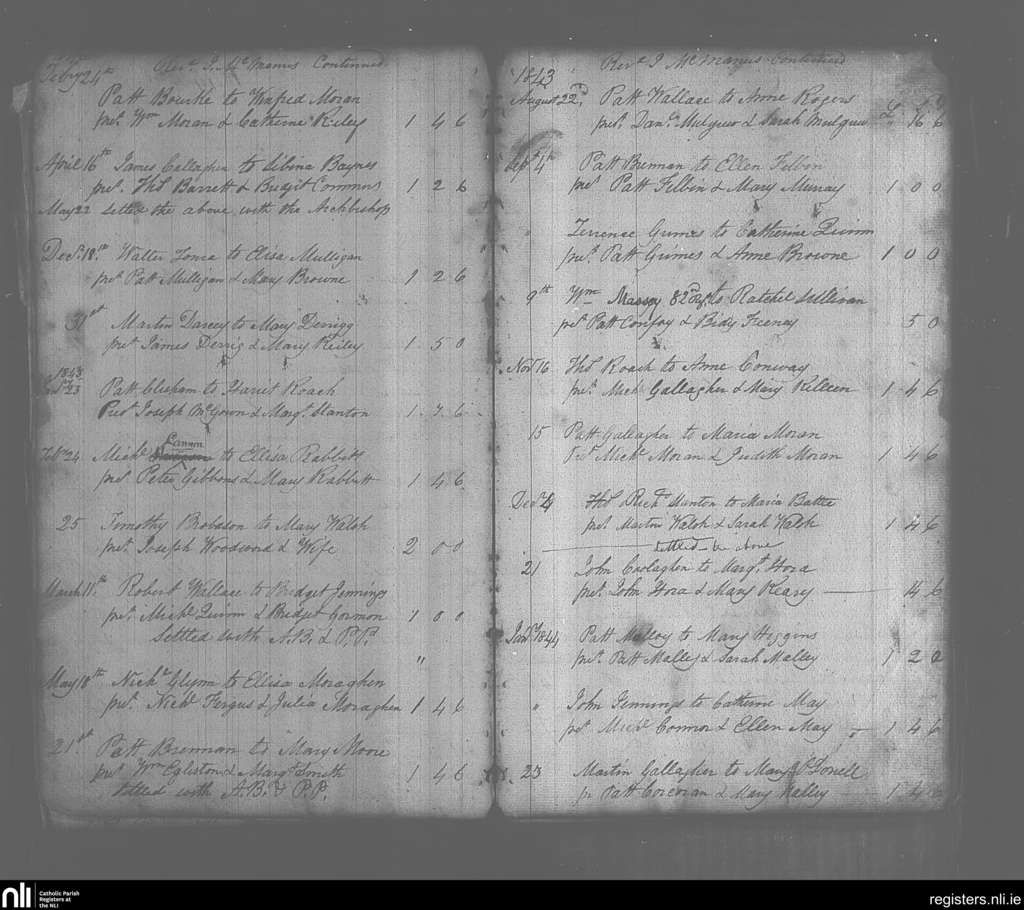 Feby 24th Revd J. McManus Continued
Patt Bourke to Winfred Moran
prt. Wm Moran & Catherine Reiley 1 4 6
April 16th James Callaghan to Sibina Baynes
prt. Thos Barrett & Bridgit Commons 1 2 6
May 22 Settled the above with the Archbishop
Decr. 18th Walter to Elisa Mulligan
prt Patt Mulligan & Mary Browne 1 2 6
31st Martin Darcey to Mary Derrigg
prt James Derrig & Mary Reiley 1 5 0
1843
23 Patt Clisham to Harriet Roach
Prt. Joseph McGown & Margt. Stanton 1 7 6
Lannon
Feb. 24 Michl to Ellisa Rabbitt
prt Peter Gibbons & Mary Rabbitt 1 4 6
25 Timothy Brobson to Mary Walsh
prt. Joseph Woodword & Wife 2 0 0
March 11th Robert Wallace to Bridget Jennings
prt. Michl Quinn & Bridget Gormon 1 0 0
Settled with A.B. & P.P.
"
May 18th Nichs Glynn to Ellisa Moraghen
prt. Nichs Fergus & Julia Moraghen 1 4 6
21st Patt Brennan to Mary Moore
prt Wm Egliston & Margt Smith 1 4 6
Settled with A.B. & P.P.
1843 Revd J McManus Continued
August 22d Patt Wallace to Anne Rogers
prt. Danl. Mulgrew & Sarah Mulgrew " 16 6
Sept 4th Patt Brennan to Ellen Filbin
prt Patt Filbin & Mary Murray 1 0 0
" Terrence Grimes to Catherine Quinn
prt. Patt Grimes & Anne Browne 1 0 0
9th Wm Massey 82nd Rgt to Ratchel Sullivan
prt Patt Confoy & Bidy Feeney 5 0
Novr 16 Thos Roach to Anne Conway
prt. Michl Gallagher & Mary Killeen 1 4 6
15 Patt Gallagher to Maria Moran
Prt Michl Moran & Judith Moran 1 4 6
Decr 4 Thos Richd Stanton to Maria Battle
prt Martin Walsh & Sarah Walsh 1 4 6
Settled the above
21 John Carlaghen to Margt. Hora
prt. John Hora & Mary Keary 14 6
Jany 1844 Patt Malloy to Mary Higgins
prt. Patt Malley & Sarah Malley 1 2 0
" John Jennings to Catherine May
prt Michl Connor & Ellen May 1 4 6
23 Martin Gallagher to Mary Donell
pr Patt Corcoran & Mary Kelley 1 4 6
nli Catholic Parish
Registers at
the NLI
registers.nli.ie